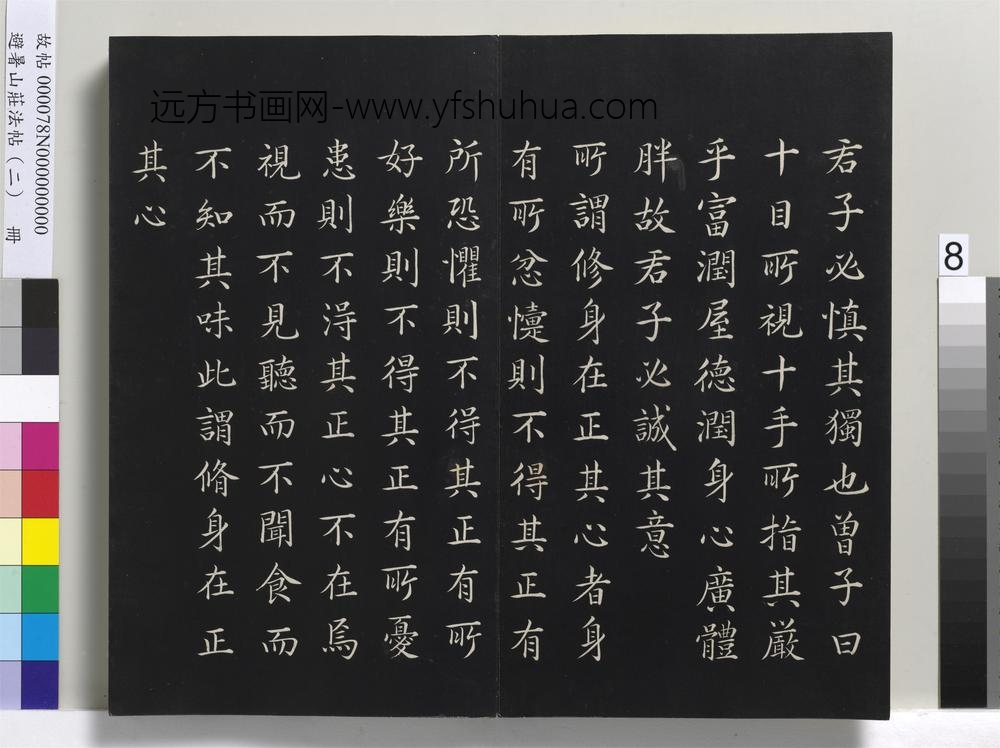 君子必慎其獨也曾子曰
十目所視十手所指其嚴
乎富潤屋德潤身心廣體
胖故君子必誠其意
所謂修身在正其心者身
有所忿懥則不得其正有
所恐懼則不得其正有所
好樂則不得其正有所憂
患則不得其正心不在焉
視而不見聽而不聞食而
不知其味此謂脩身在正
其心
远方书画网-www.yfshuhua.com
故帖 000078N000000000
避暑山莊法帖（二） 冊
8